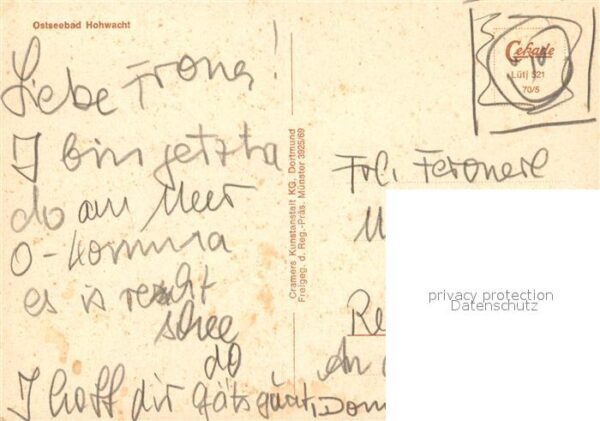 Ostseebad Hohwacht
Liebe Frona!
I bin getzta
do am Meer
O-komma
es is recht
schee
do
I hoff dir gäts guat,
Cramers Kunstanstalt KG. Dortmund
Freigeg. d. Reg.-Präs. Münster 3925/69
Cekade
Lütj 521
70/5
Frl.
M
Re
An
Dom
privacy protection
Datenschutz